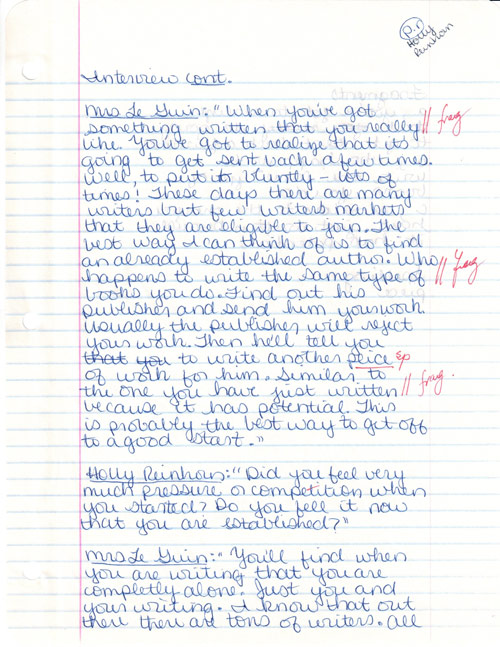 Holly
Reinhorn
Interview cont.
Mrs Le Guin: "When you've got
something written that you really // frag
like. You've got to realize that it's
going to get sent back a few times.
Well, to put it bluntly - lots of
times! These days there are many
writers but few writers markets
that they are eligible to join. The
best way I can think of is to find
an already established author. Who // frag
happens to write the same type of
books you do. Find out his
publisher and send him your work.
Usually the publisher will reject
your work. Then he'll tell you
that you to write another peice sp
of work for him. Similar to
the one you have just written // frag.
because it has potential. This
is probably the best way to get off
to a good start."
Holly Reinhorn: "Did you feel very
much pressure or competition when
you started? Do you fell it now
that you are established?"
Mrs Le Guin: "You'll find when
you are writing that you are
completly alone. Just you and
your writing. I know that out
there there are tons of writers. All